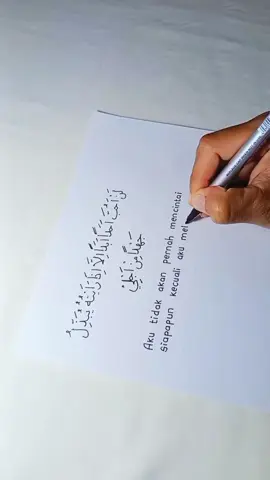 لَنْ أُحِبَّ أَحَدًا أَبَدًا إِلَّا إِذَا رَأَيْتُهُ يُبْذِلُ
جَهْدًا مِنْ أَجْلِيْ
Aku tidak akan pernah mencintai
siapapun kecuali aku mel